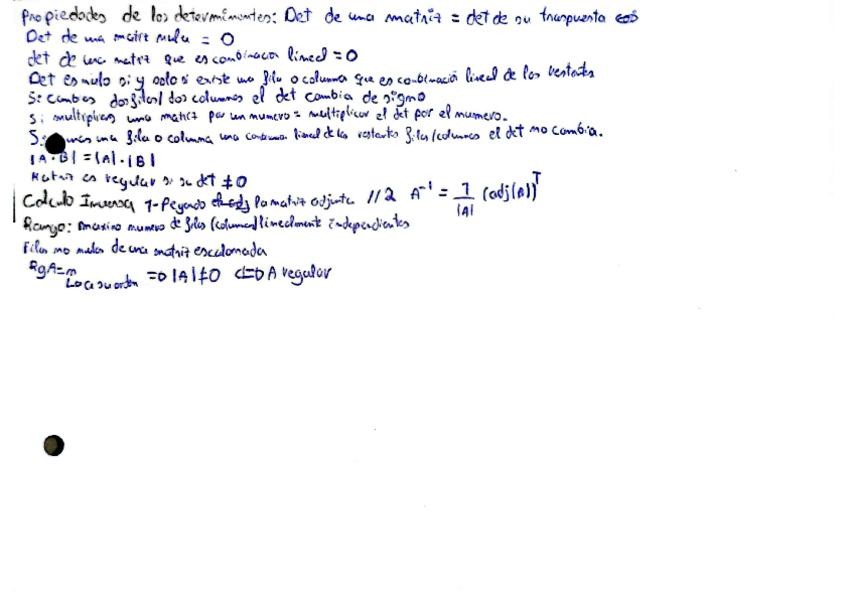 Propiedades de los determinantes: Det de una matriz = det de su traspuesta
Det de una matriz nula = 0
det de una matriz que es combinacion lineal = 0
Det es nulo si y solo si existe una fila o columna que es combinació lineal de los restantes
Si cambias dos filas/dos columnas el det cambia de signo
Si multiplicas una matriz por un numero = multiplicar el det por el numero.
una fila o columna una lineal de las restantes filas/columnas el det no cambia.
|A·B| = |A|·|B|
Matriz es regular si su det ≠ 0
Calculo Inversa 1- la matriz adjunta // 2 A⁻¹ = 1/|A| (adj(A))ᵀ
Rango: maximo numero de filas (columnas) linealmente independientes
Filas no nulas de una matriz escalonada
RgA=n => |A|≠0 <=> A regular
Lo es su orden